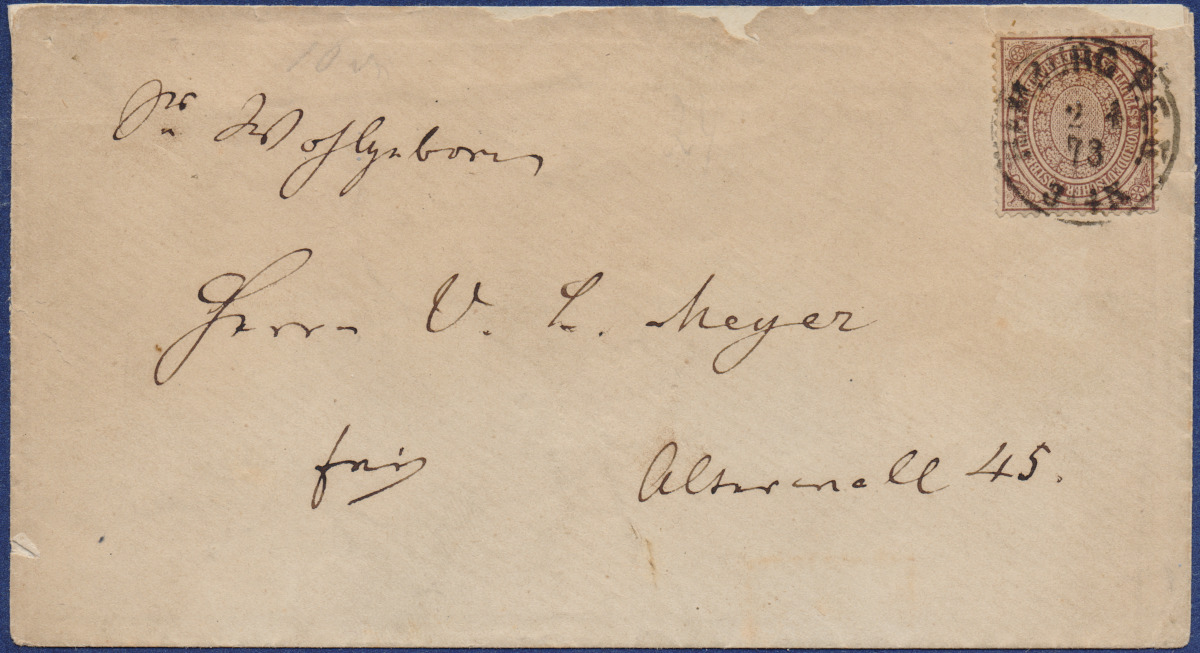 Sr Wohlgeboren
Herrn V. L. Meyer
frei Alterwall 45.
HAMBURG
2 4
73